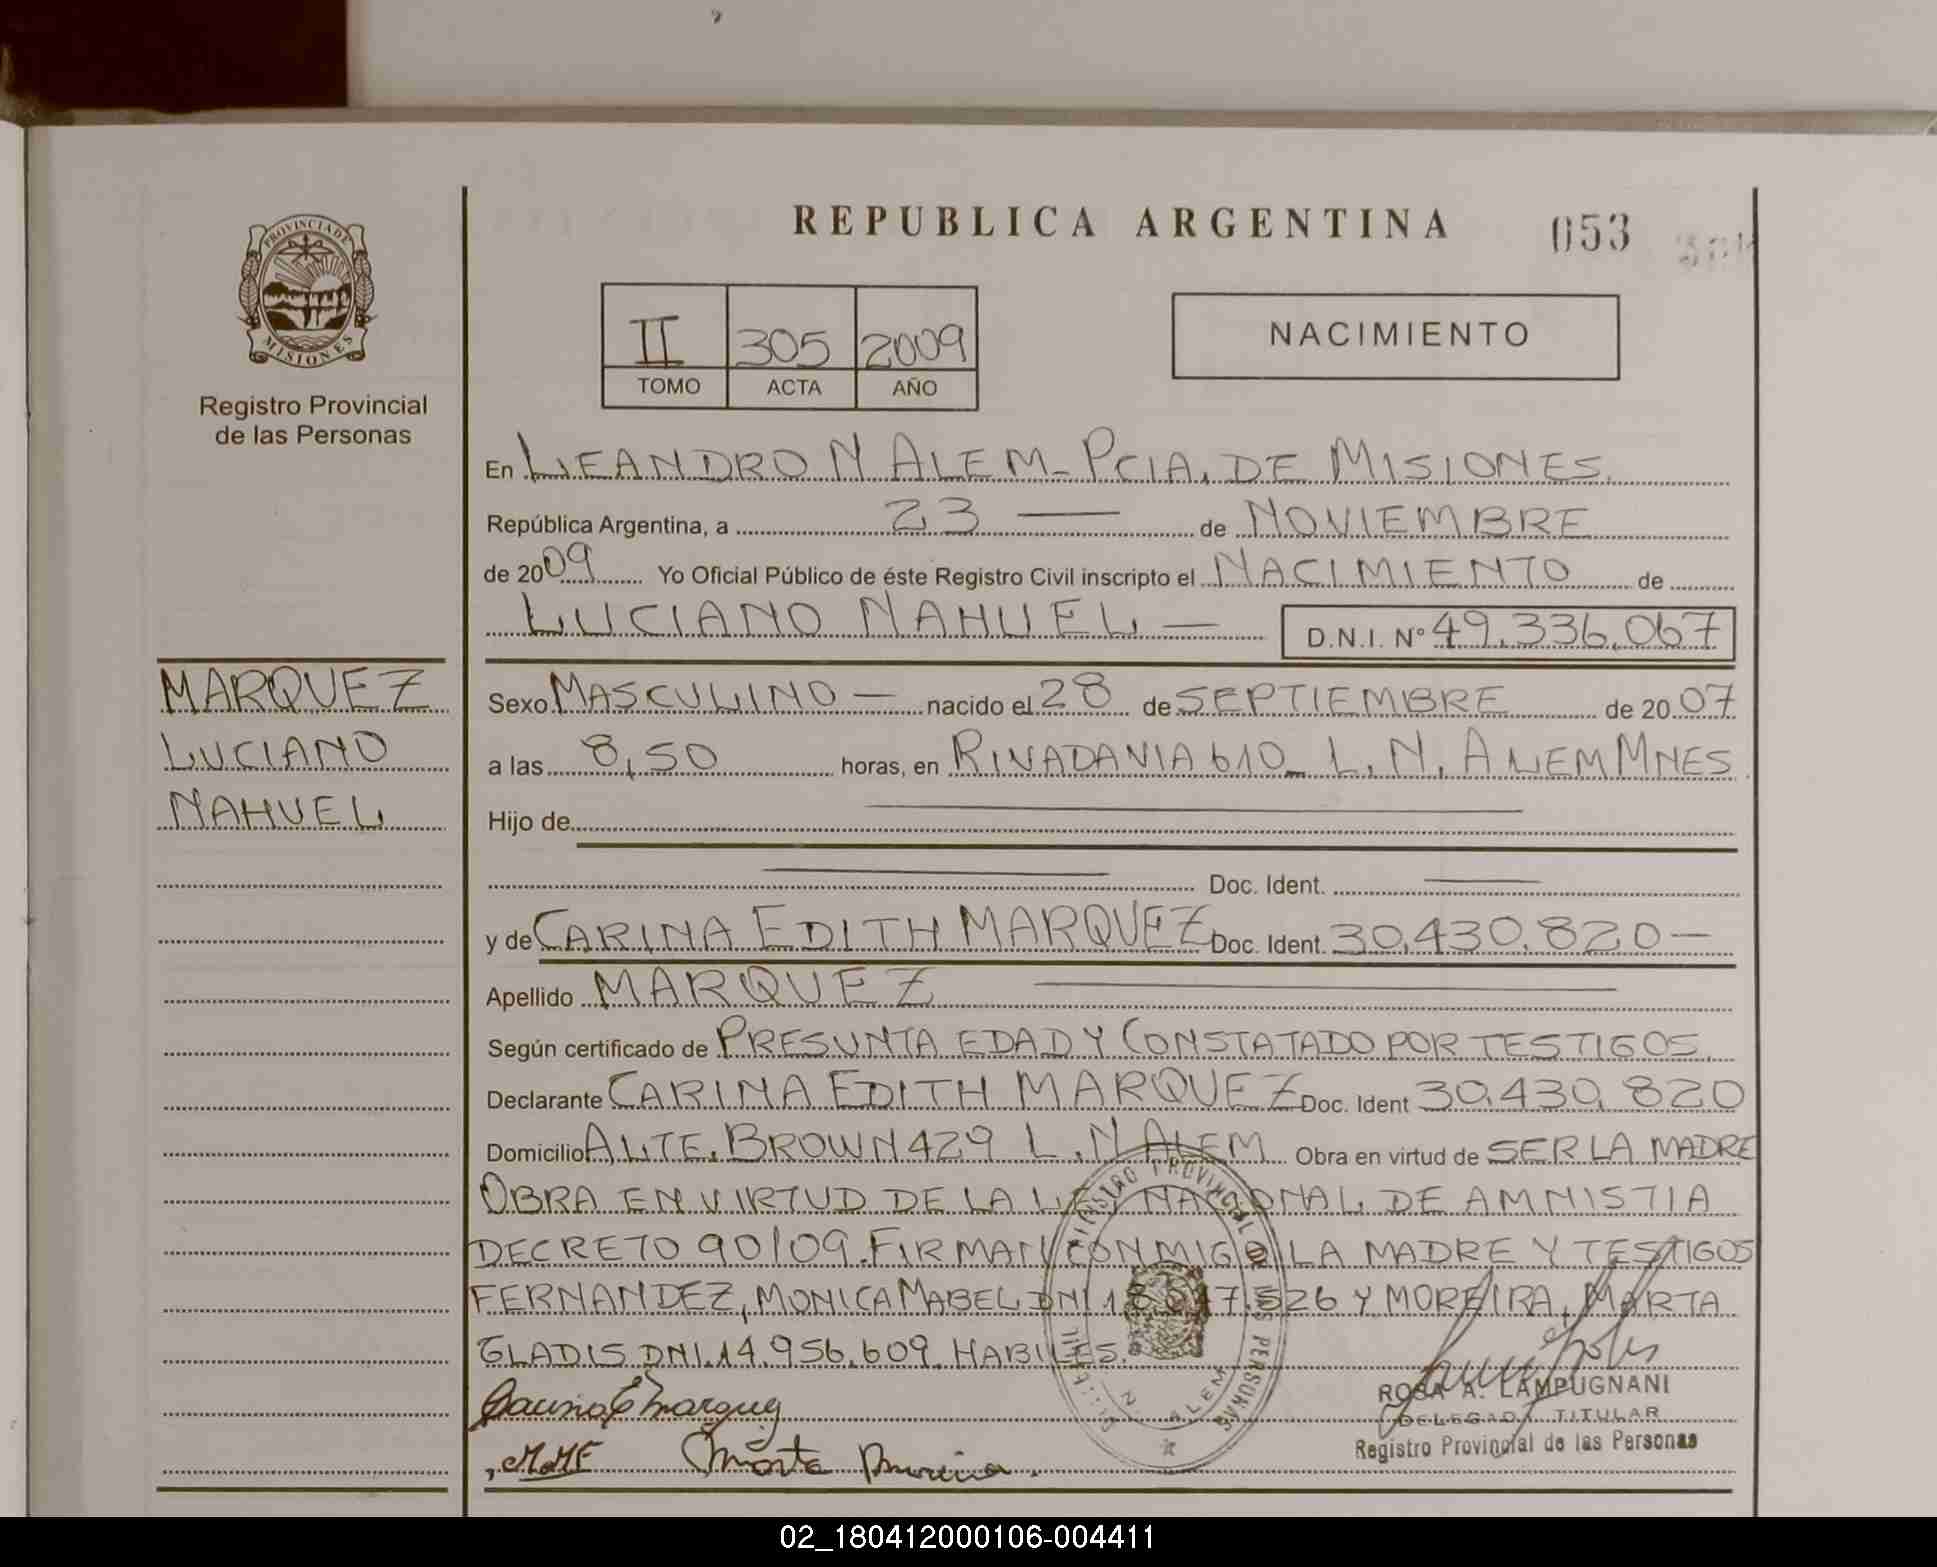 REPUBLICA ARGENTINA
053
PROVINCIA DE
MISIONES
Registro Provincial
de las Personas
II 305 2009
TOMO ACTA AÑO
NACIMIENTO
En LEANDRO N ALEM - PCIA. DE MISIONES.
República Argentina, a 23 — de NOVIEMBRE
de 2009 Yo Oficial Público de éste Registro Civil inscripto el NACIMIENTO de
LUCIANO NAHUEL — D.N.I. Nº 49.336.067
MARQUEZ
LUCIANO
NAHUEL
Sexo MASCULINO — nacido el 28 de SEPTIEMBRE de 2007
a las 8,50 horas, en RIVADAVIA 610_ L. N. ALEM MNES
Hijo de
Doc. Ident.
y de CARINA EDITH MARQUEZ Doc. Ident. 30.430.820 —
Apellido MARQUEZ
Según certificado de PRESUNTA EDAD Y CONSTATADO POR TESTIGOS.
Declarante CARINA EDITH MARQUEZ Doc. Ident 30.430.820
Domicilio ALTE. BROWN 429 L. N ALEM Obra en virtud de SER LA MADRE
OBRA EN VIRTUD DE LA LEY NACIONAL DE AMNISTIA
DECRETO 90/09. FIRMAN CONMIGO LA MADRE Y TESTIGOS
FERNANDEZ, MONICA MABEL DNI 7.526 Y MOREIRA, MARTA
GLADIS DNI. 14.956.609. HABILES.
Carina E Marquez
M.M.F Marta Moreira.
ROSA A. LAMPUGNANI
DELEGADA TITULAR
Registro Provincial de las Personas
02_180412000106-004411